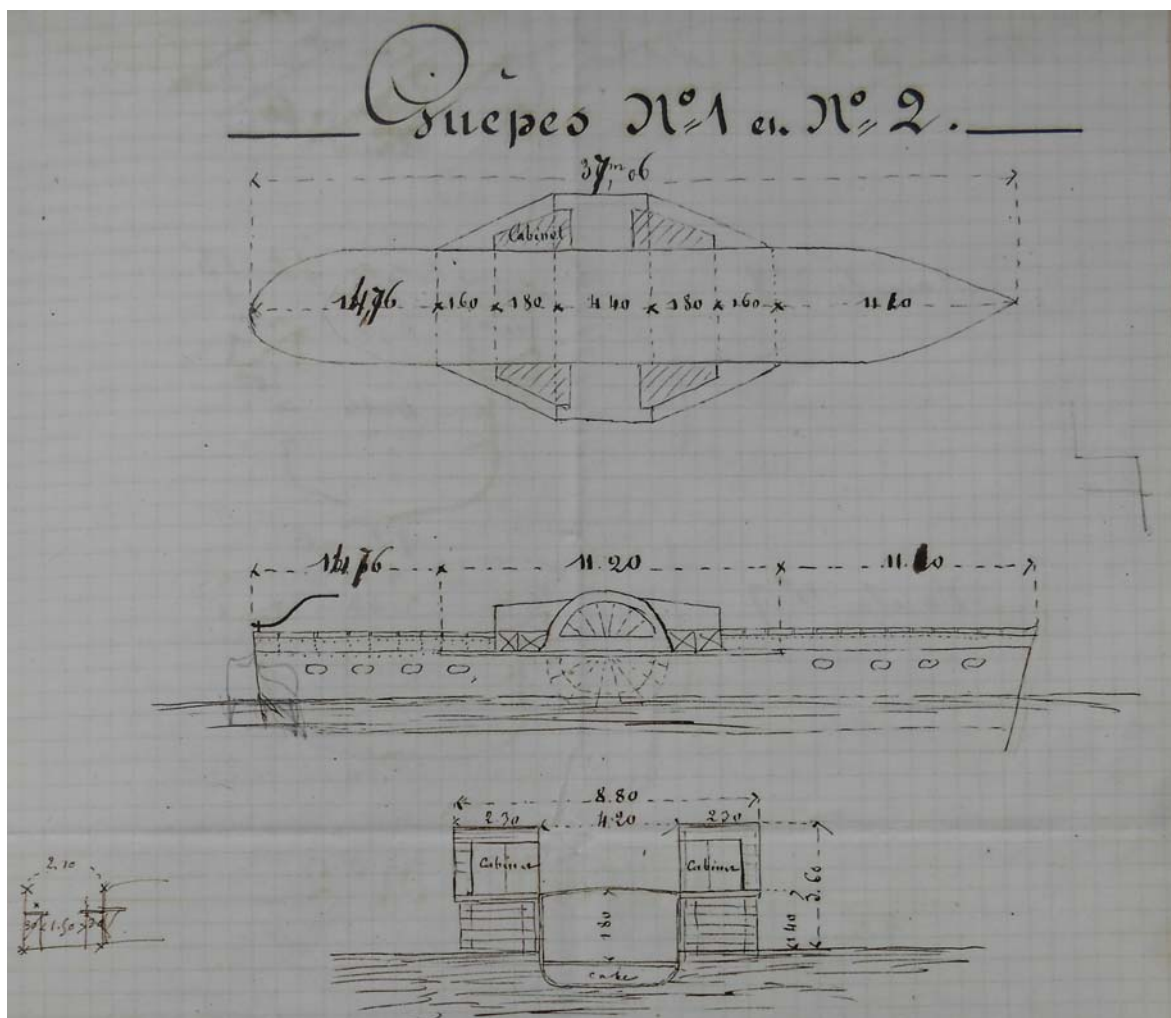 Guêpes Nº 1 et Nº 2.
37,ᵐ06
Cabinet
14,76 160 180 440 180 160 11 10
14,76 11.20 11.10
8.80
2 30 4.20 2 30
Cabine Cabine
180 140 3.60
cale
2,10
30 1.50 30